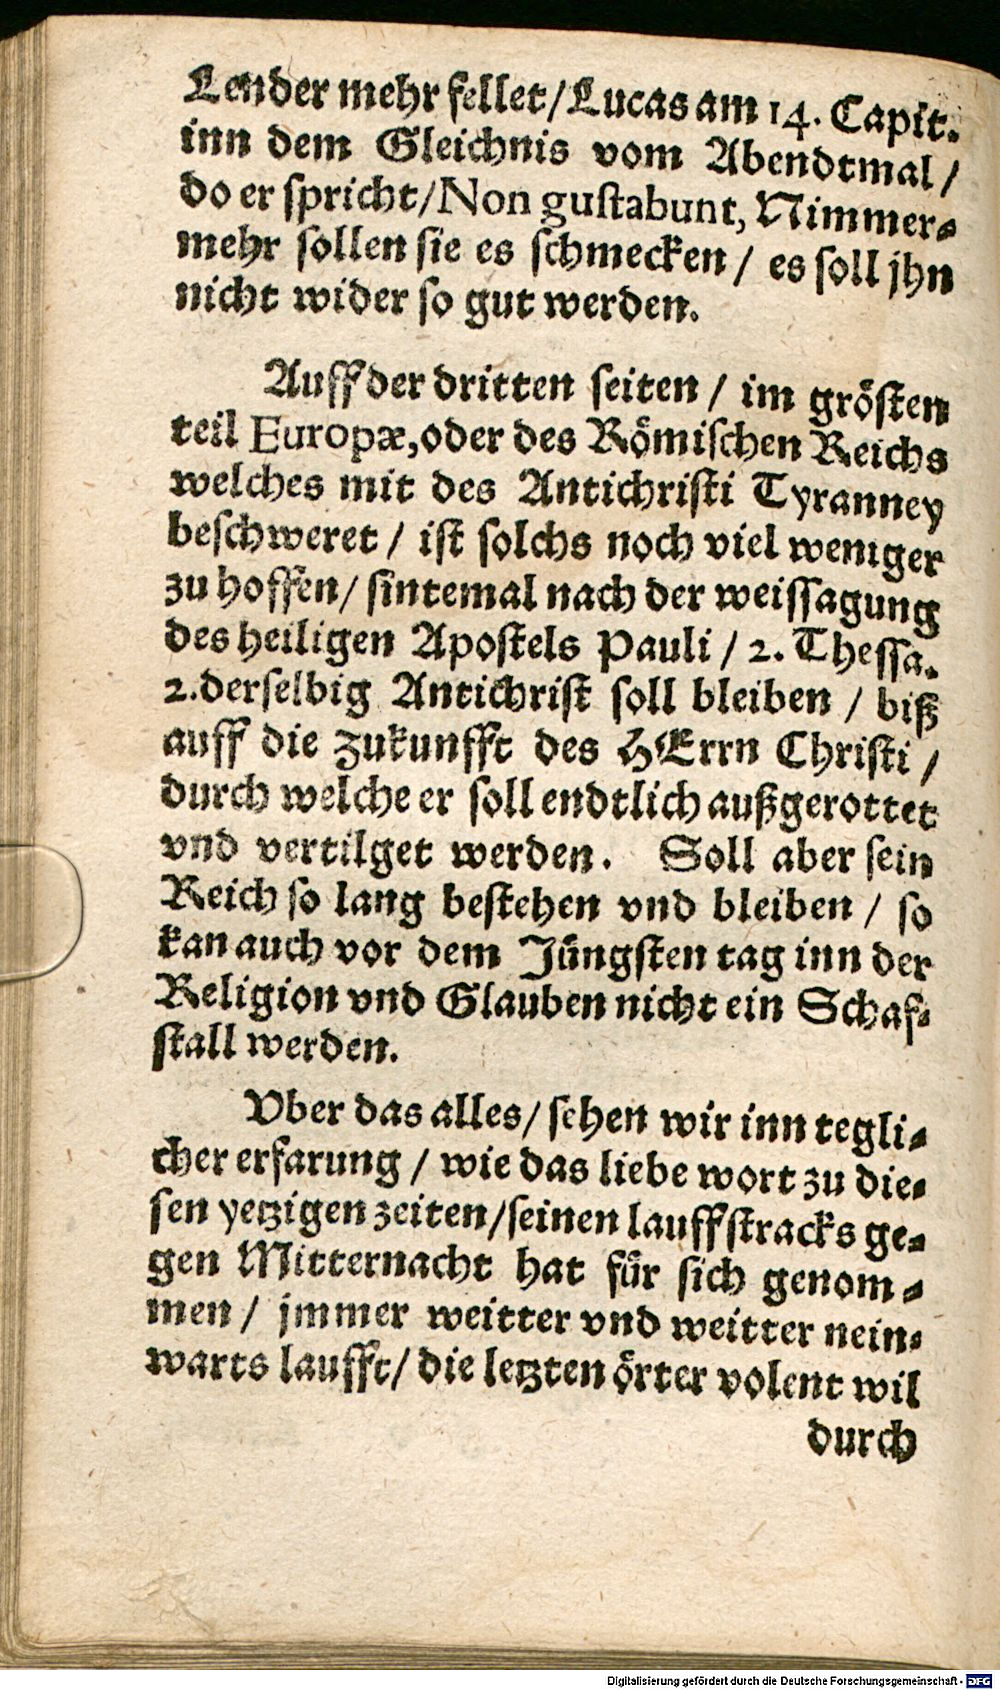 Lender mehr fellet/Lucas am 14. Capit.
inn dem Gleichnis vom Abendtmal/
do er spricht/Non gustabunt, Nimmer-
mehr sollen sie es schmecken / es soll jhn
nicht wider so gut werden.
Auff der dritten seiten / im grösten
teil Europæ, oder des Römischen Reichs
welches mit des Antichristi Tyranney
beschweret / ist solchs noch viel weniger
zu hoffen/ sintemal nach der weissagung
des heiligen Apostels Pauli / 2. Thessa.
2. derselbig Antichrist soll bleiben / biß
auff die zukunfft des HErrn Christi /
durch welche er soll endtlich außgerottet
vnd vertilget werden. Soll aber sein
Reich so lang bestehen vnd bleiben / so
kan auch vor dem Jüngsten tag inn der
Religion vnd Glauben nicht ein Schaf-
stall werden.
Vber das alles/ sehen wir inn tegli-
cher erfarung / wie das liebe wort zu die-
sen yetzigen zeiten/seinen lauff stracks ge-
gen Mitternacht hat für sich genom-
men / jmmer weitter vnd weitter nein-
warts laufft/ die letzten örter volent wil
durch
Digitalisierung gefördert durch die Deutsche Forschungsgemeinschaft - DFG